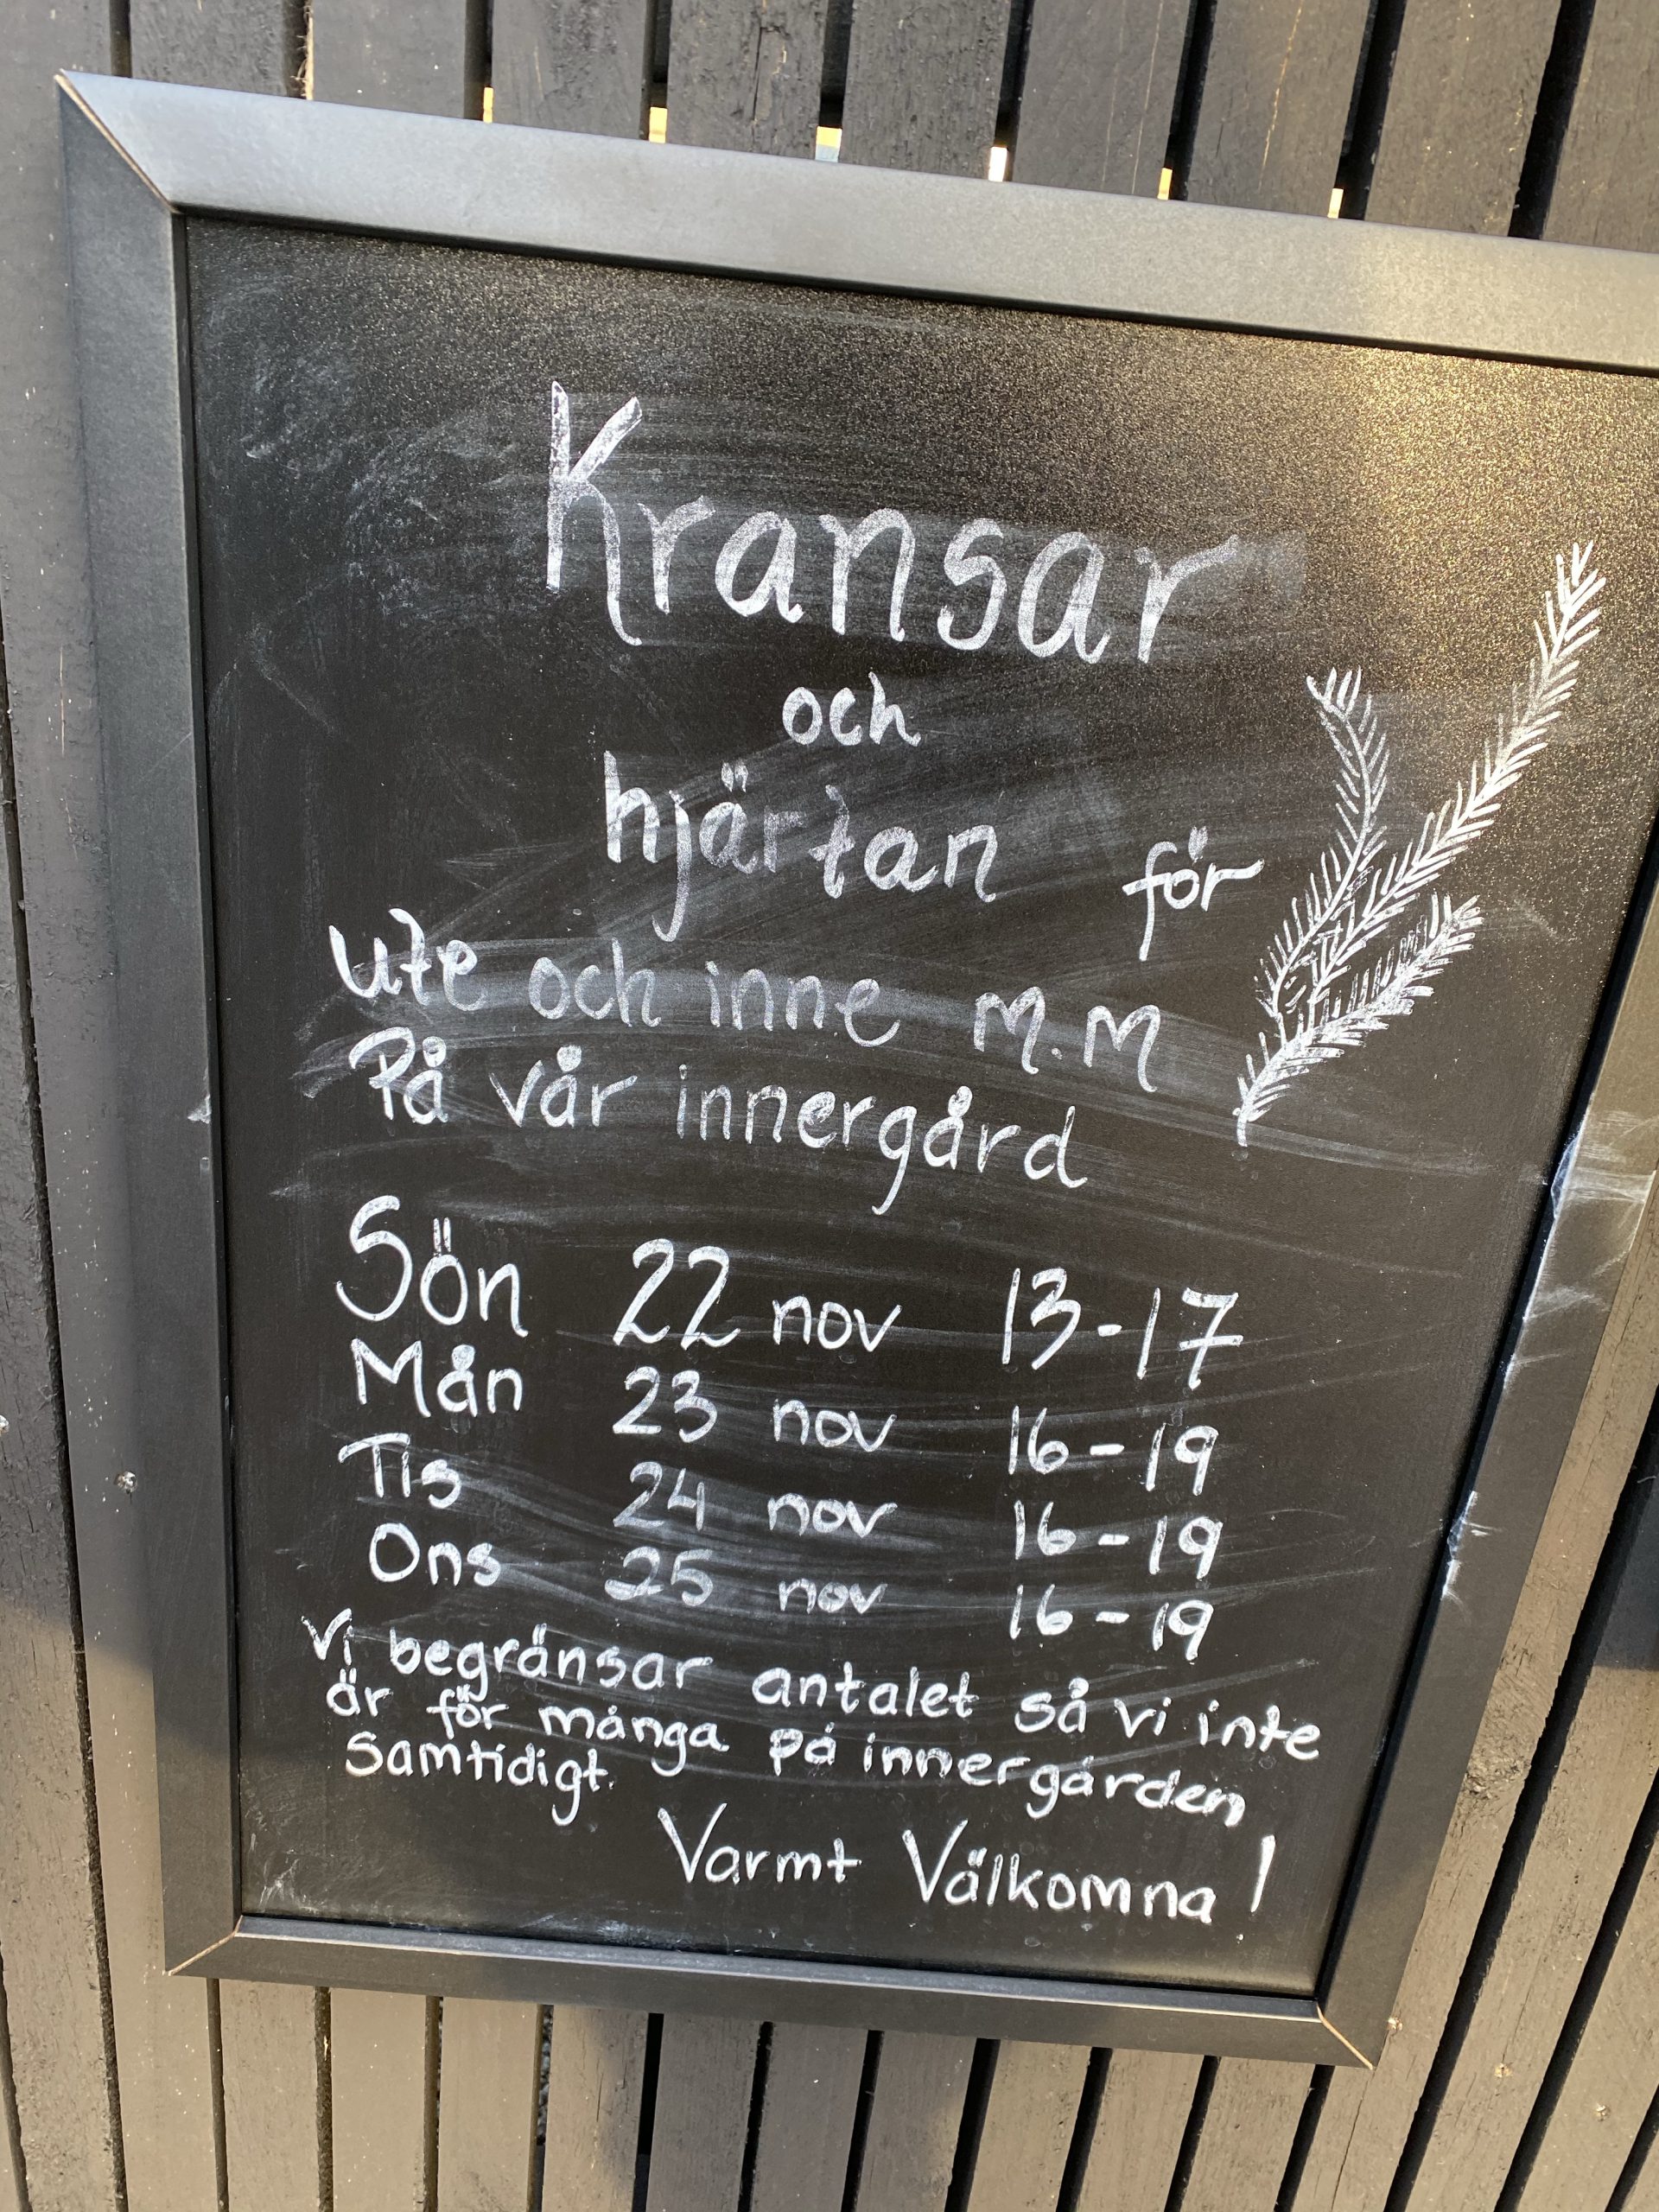 Kransar
och
hjärtan för
ute och inne M.M
På vår innergård
Sön 22 nov 13-17
Mån 23 nov 16-19
Tis 24 nov 16-19
Ons 25 nov 16-19
Vi begränsar antalet så vi inte
är för många på innergården
samtidigt.
Varmt Välkomna!